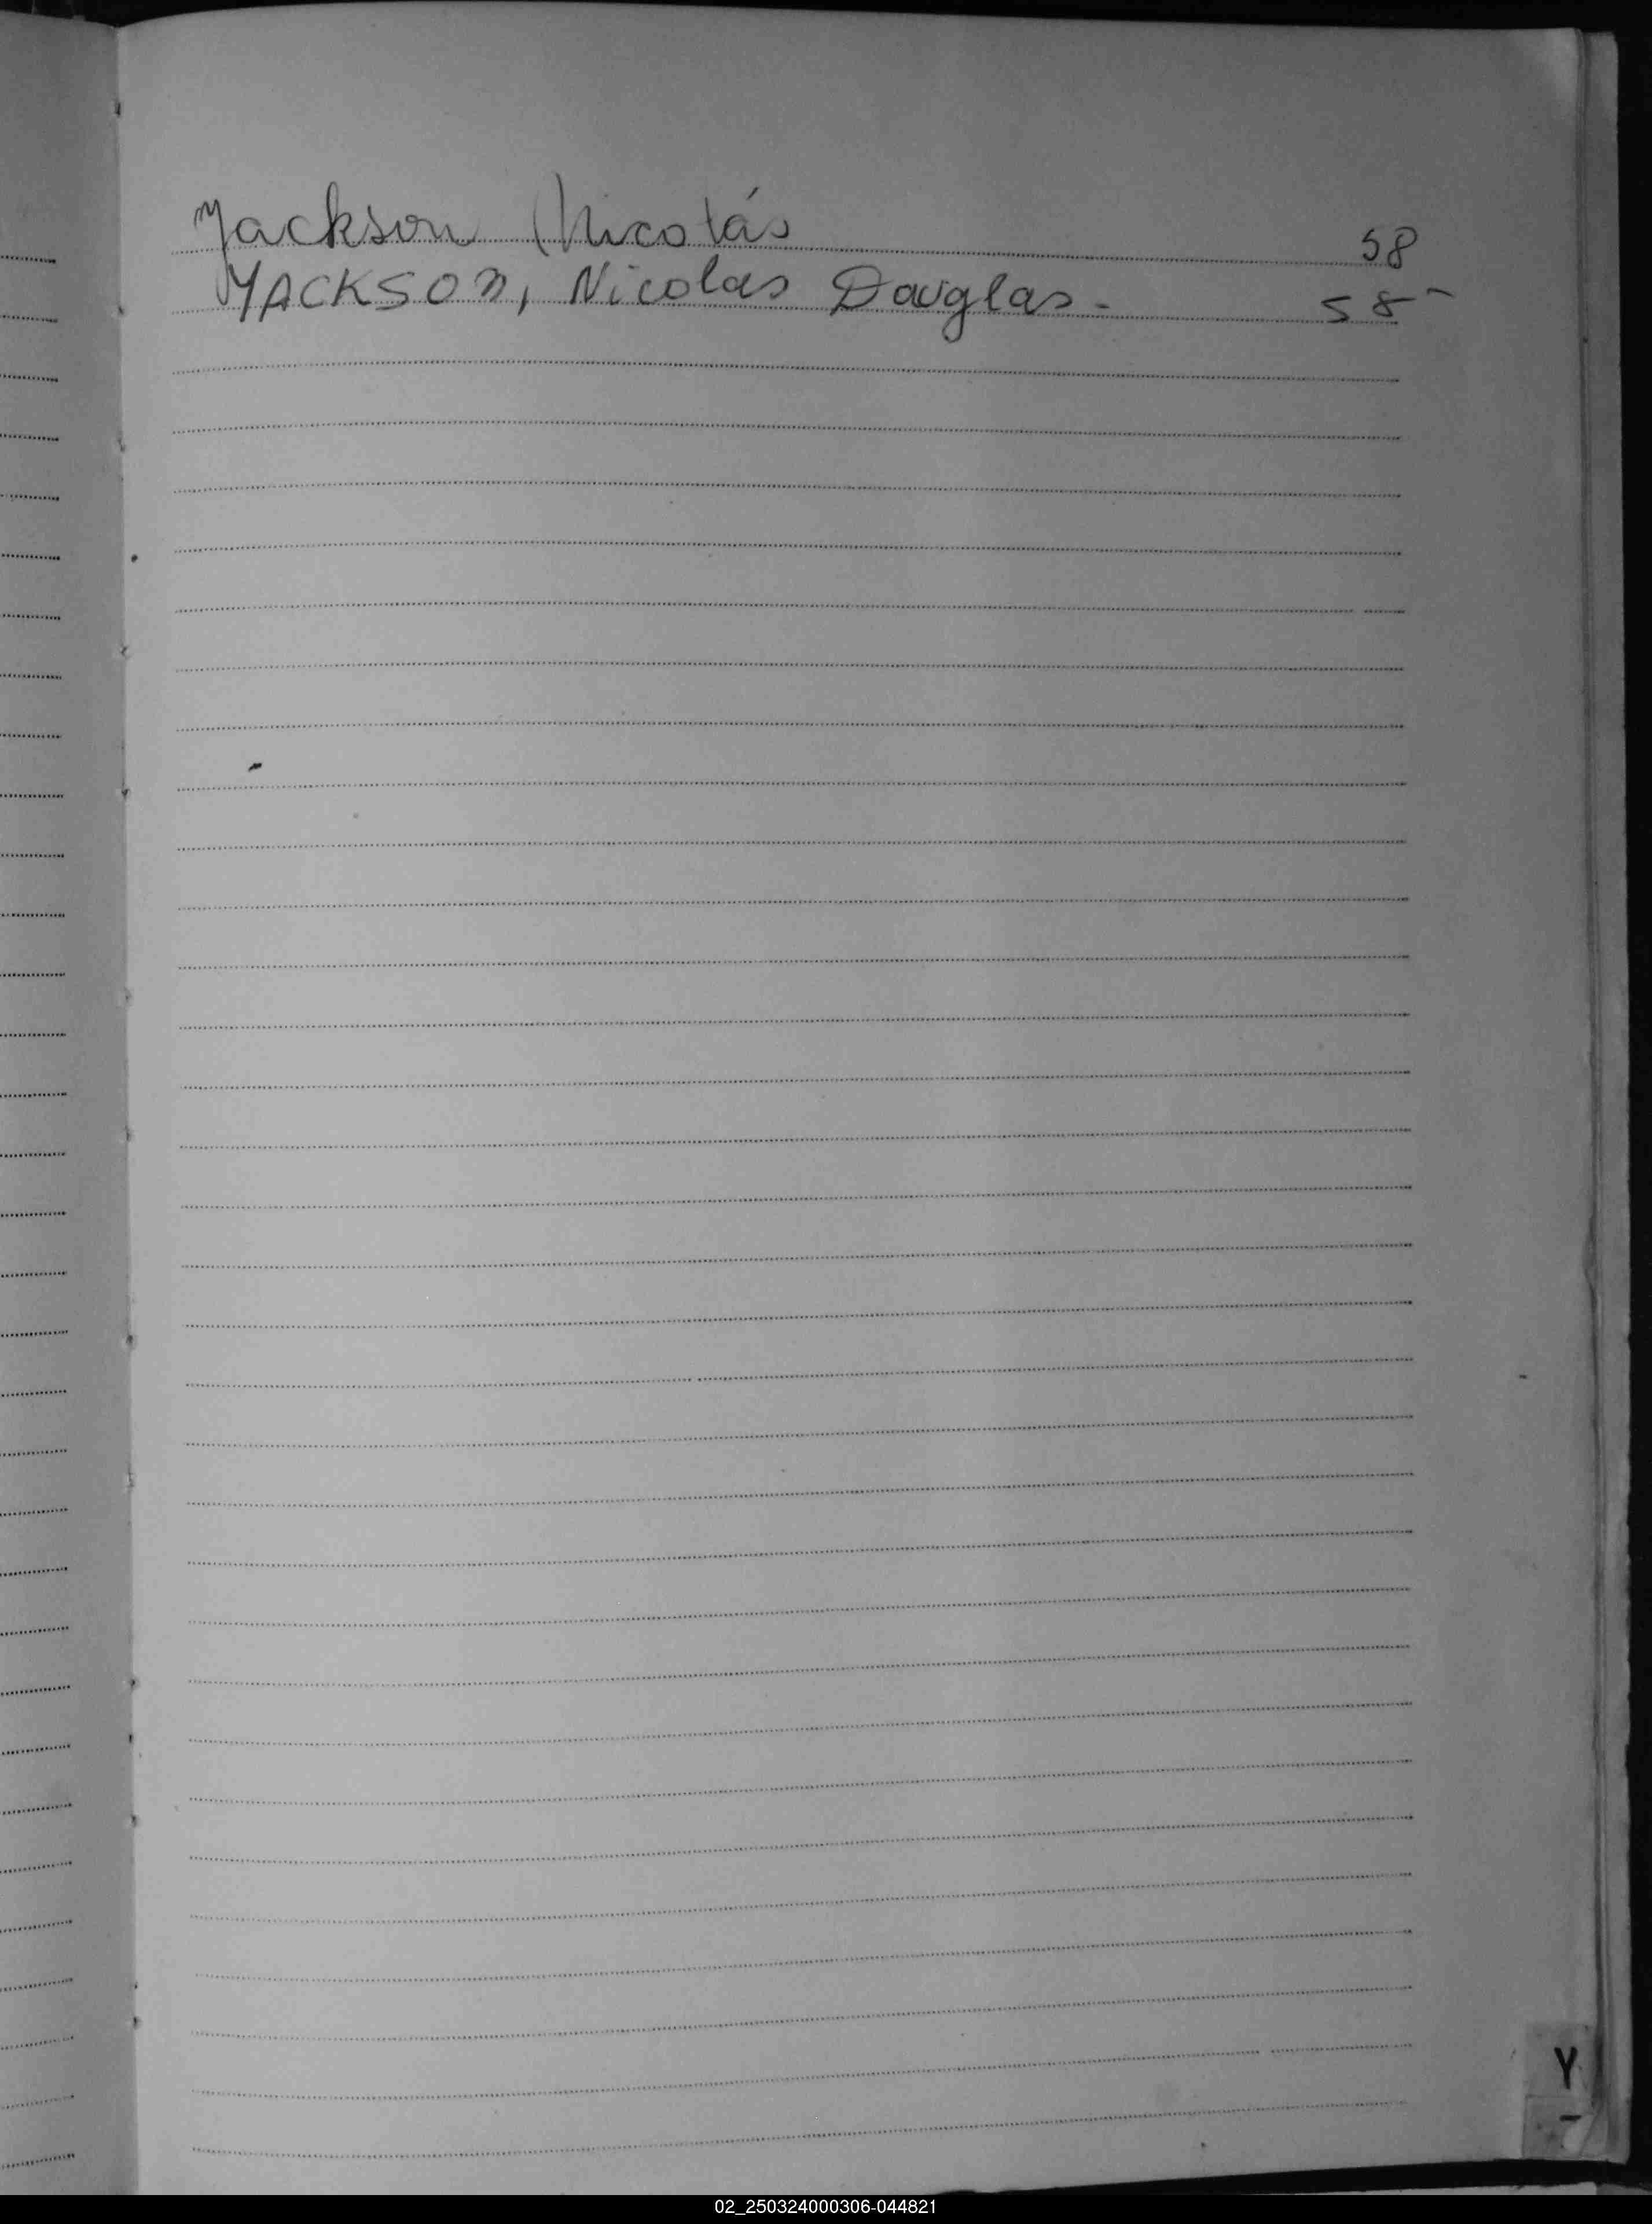 Yackson (Nicolás 58
YACKSON, Nicolas Douglas- 58-
Y
02_250324000306-044821